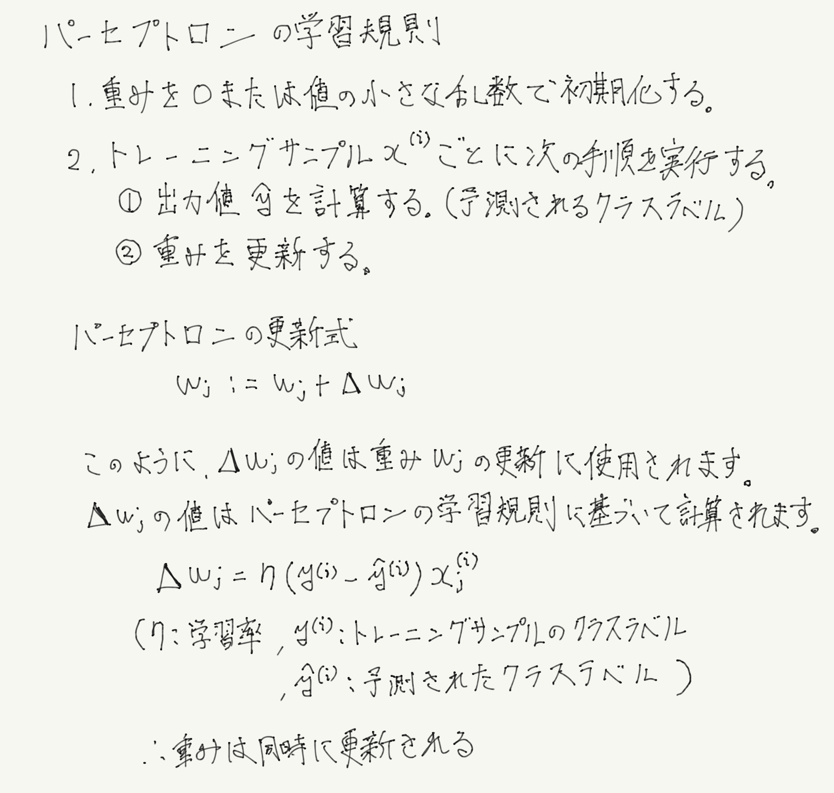 パーセプトロンの学習規則
1. 重みを0または値の小さな乱数で初期化する。
2. トレーニングサンプル x^(i) ごとに次の手順を実行する。
① 出力値 ŷ を計算する。(予測されるクラスラベル)
② 重みを更新する。
パーセプトロンの更新式
wj := wj + Δwj
このように、Δwjの値は重みwjの更新に使用されます。
Δwjの値はパーセプトロンの学習規則に基づいて計算されます。
Δwj = η(y^(i) - ŷ^(i)) xj^(i)
(η:学習率, y^(i):トレーニングサンプルのクラスラベル
, ŷ^(i):予測されたクラスラベル)
∴重みは同時に更新される